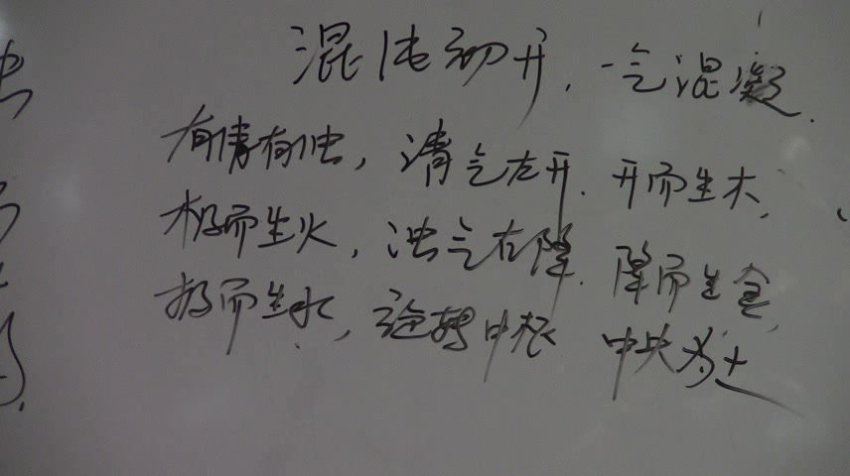 混沌初开,一气混凝.
有清有浊,清气左升.升而生木,
极而生火,浊气右降.降而生金,
极而生水,旋转中枢 中央为土